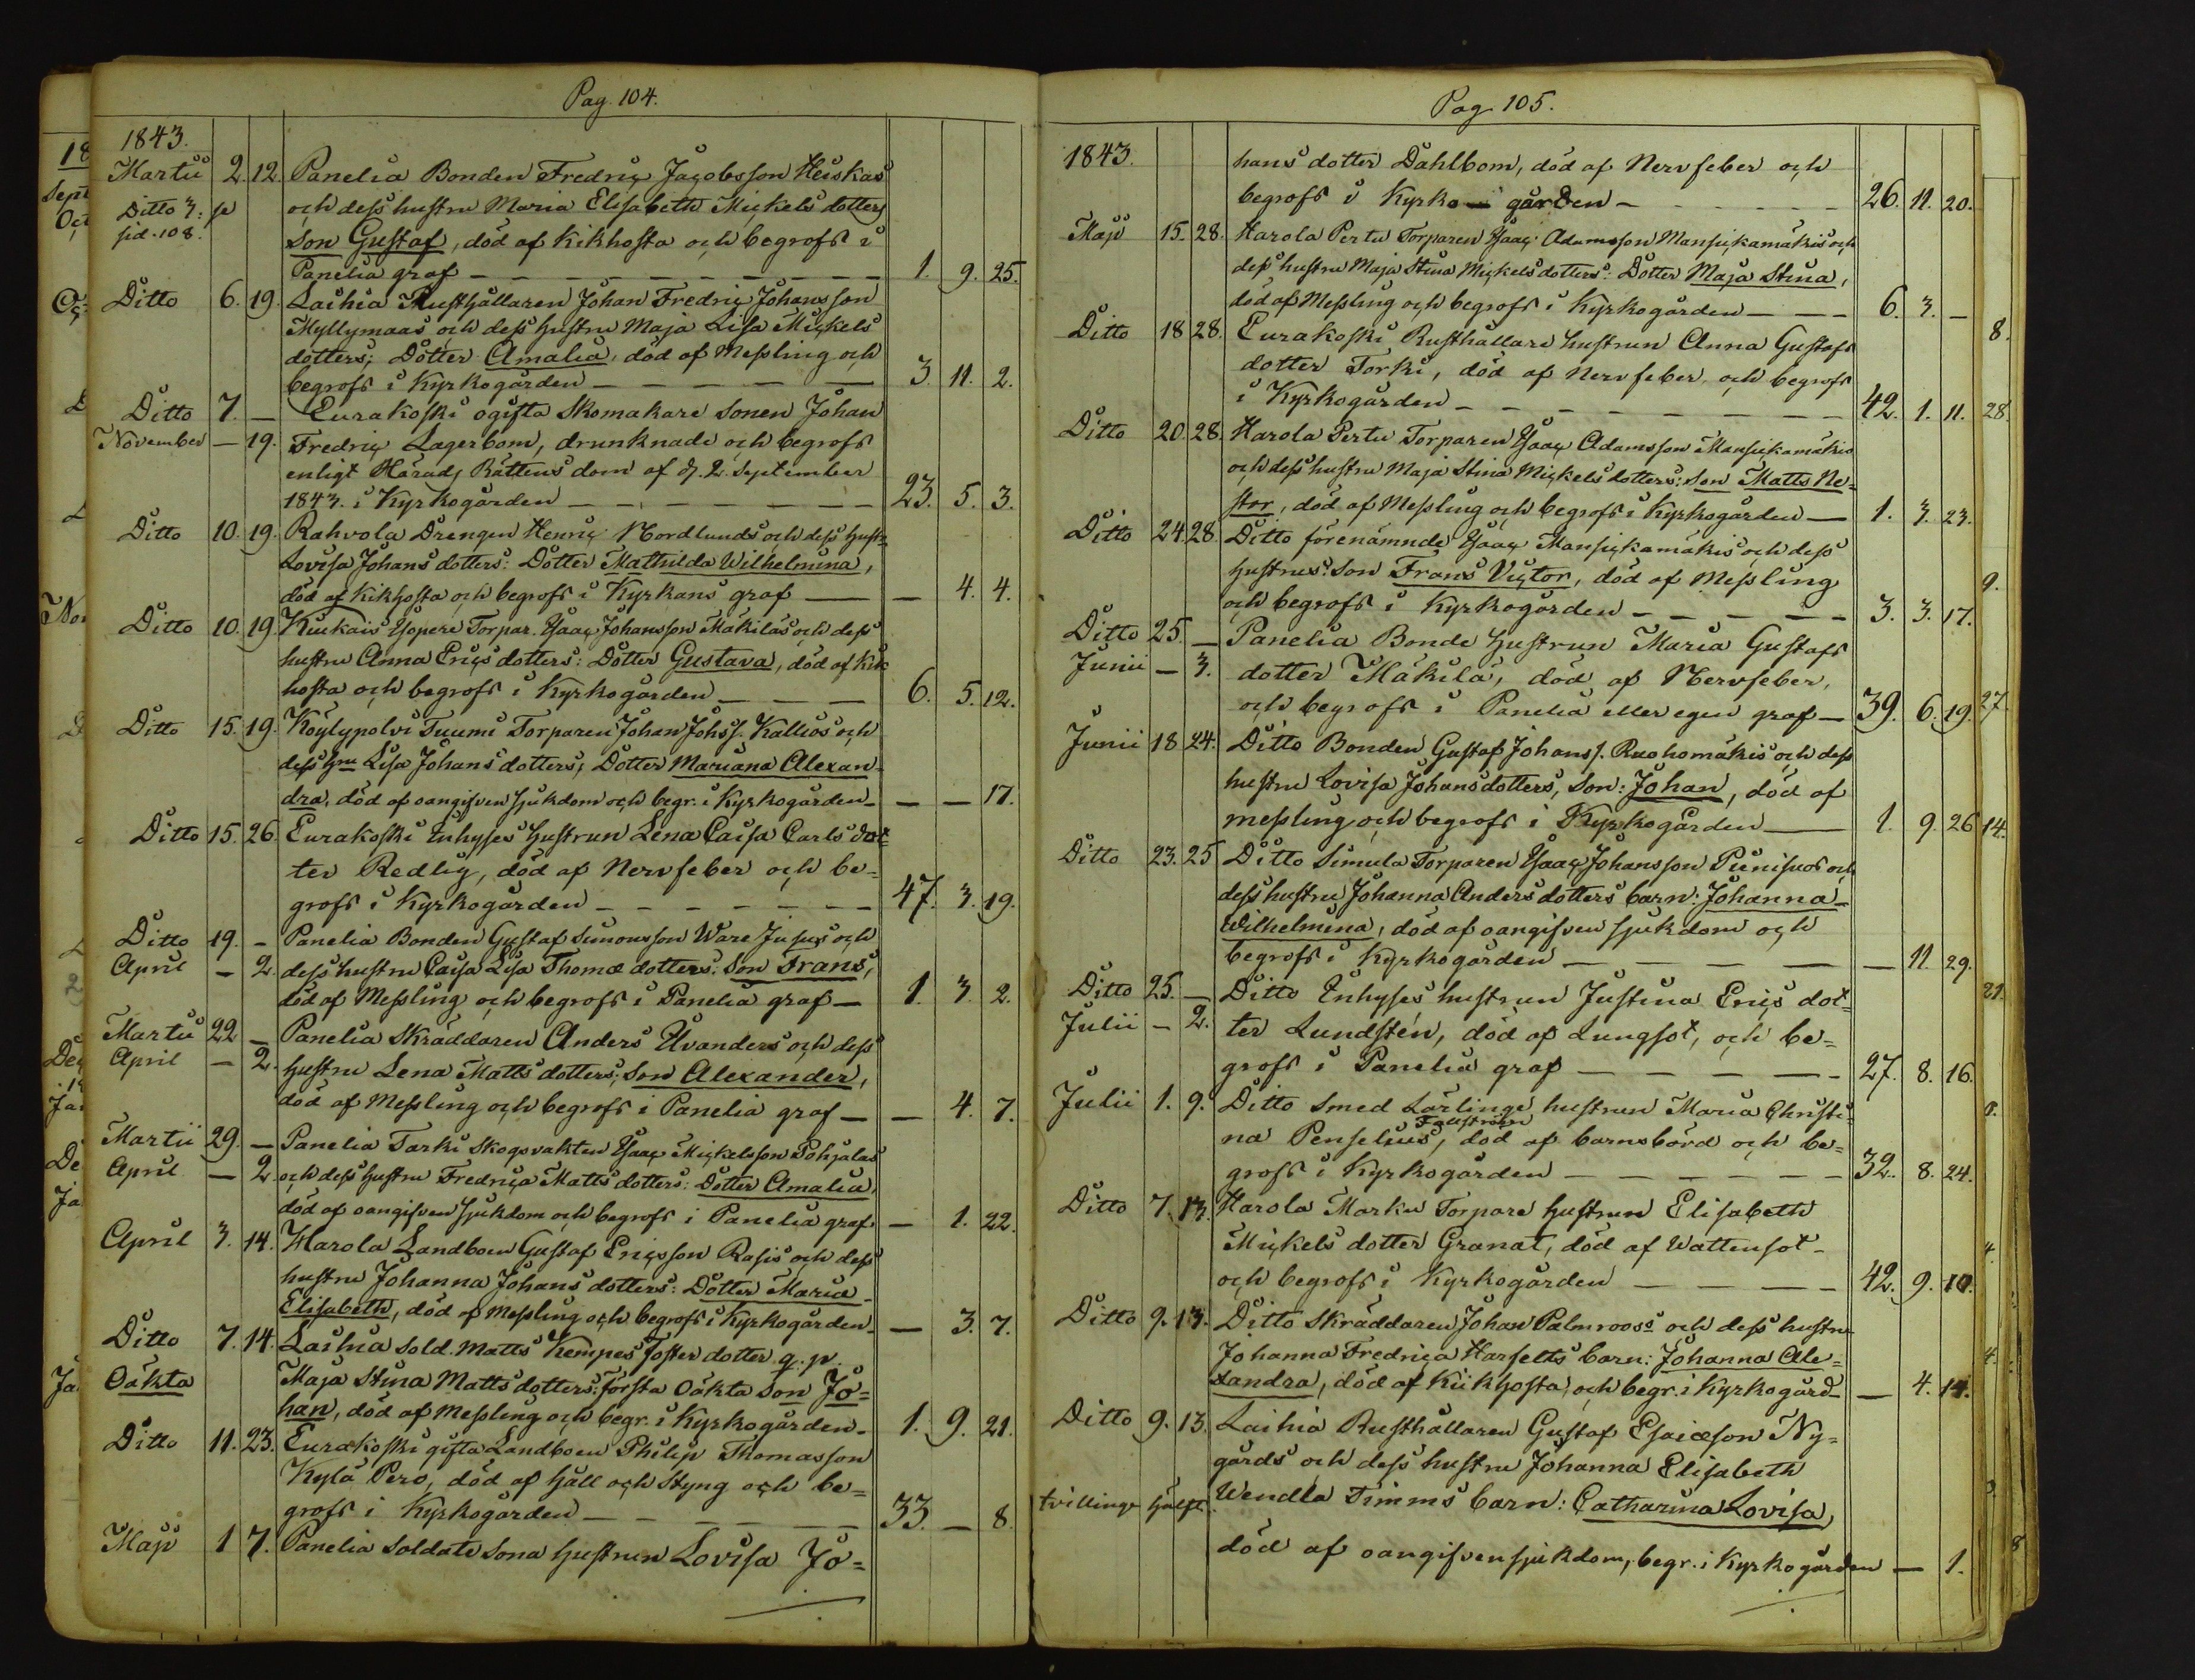 Pag. 104.
1843.
Martii 2. 12. Panelia Bonden Fredriç Jaçobsson Heiskas
Ditto 3: se oçh dess hustru Maria Elisabeth Miçkels dotters
sid. 108. son Gustaf, död af Kikhosta oçh begrofs i
Panelia graf — 1. 9. 25.
Ditto 6. 19. Laihia Rusthållaren Johan Fredriç Johansson
Myllymaas oçh dess hustru Maja Lisa Miçkels
dotters; Dotter Amalia, död af Messling oçh
begrofs i Kyrkogården — 3. 11. 2.
Ditto 7. — Eurakoski ogifta Skomakare sonen Johan
November — 19. Fredriç Lagerbom, drunknade oçh begrofs
enligt Härads Rättens dom af d. 2. September
1843. i Kyrkogården — 23. 5. 3.
Ditto 10. 19. Rahvola Drengen Henriç Nordlunds oçh dess hust=
Lovisa Johans dotters: Dotter Mathilda Wilhelmina,
död af Kikhosta oçh begrofs i Kyrkans graf — — 4. 4.
Ditto 10. 19. Kiukais Yopere Torpar. Ysaaç Johansson Mäkiläs oçh dess
hustru Anna Eriçs dotters: Dotter Gustava, död af Kik
hosta oçh begrofs i Kyrkogården — 6. 5. 12.
Ditto 15. 19. Köylypolvi Tuumi Torparen Johan Johss. Kallios oçh
dess hru Lisa Johans dotters; Dotter Mariana Alexan=
dra, död af oangifven sjukdom oçh begr. i Kyrkogården — — — 17.
Ditto 15. 26. Eurakoski Inhyses Hustrun Lena Caisa Carls dot=
ter Redlig, död af Nervfeber oçh be=
grofs i Kyrkogården — 47. 3. 19.
Ditto 19. — Panelia Bonden Gustaf Simonsson Ware Jusus oçh
April — 2. dess hustru Caisa Lisa Thomæ dotters: Son Frans,
död af Messling oçh begrofs i Panelia graf — 1. 3. 2.
Martii 22 — Panelia Skräddaren Anders Elvanders oçh dess
April — 2. Hustru Lena Matts dotters; Son Alexander,
död af Messling oçh begrofs i Panelia graf — — 4. 7.
Martii 29. — Panelia Tarki Skogsvakten Ysaaç Miçkelsson Pohjalas
April — 2. oçh dess hustru Fredriça Matts dotters: Dotter Amalia,
död af oangifven sjukdom oçh begrofs i Panelia graf. — 1. 22.
April 3. 14. Harola Landboen Gustaf Eriçsson Rasis oçh dess
hustru Johanna Johans dotters: Dotter Maria
Elisabeth, död af Messling oçh begrofs i Kyrkogården — — 3. 7.
Ditto 7. 14. Laihia Sold. Matts Kempes foster dotter q. p.
Oäkta Maja Stina Matts dotters: första Oäkta son Jo=
han, död af Messling oçh begr. i Kyrkogården — 1. 9. 21.
Ditto 11. 23. Eurakoski gifta Landboen Philip Thomasson
Kylä Pero, död af håll oçh styng oçh be=
grofs i Kyrkogården — 33. — 8.
Maji 1 7. Panelia Soldate Sona hustrun Lovisa Jo=
Pag 105.
1843. hans dotter Dahlbom, död af Nervfeber oçh
begrofs i Kyrko — gården — 26. 11. 20.
Maji 15. 28. Harola Pertu Torparen Ysaaç Adamsson Mansiçkamäkis oçh
dess hustru Maja Stina Miçkels dotters: Dotter Maja Stina,
död af Messling oçh begrofs i Kyrkogården — 6. 3. —
Ditto 18 28. Eurakoski Rusthållare hustrun Anna Gustafs
dotter Torki, död af Nervfeber oçh begrofs
i Kyrkogården — 42. 1. 11.
Ditto 20 28. Harola Pertu Torparen Ysaaç Adamsson Mansiçkamäkis
oçh dess hustru Maja Stina Miçkels dotters: son Matts Ne=
stor, död af Messling oçh begrofs i Kyrkogården — 1. 3. 23.
Ditto 24. 28. Ditto förenämnde Ysaaç Mansiçkamäkis oçh dess
hustrus: Son Frans Viçtor, död af Messling
oçh begrofs i Kyrkogården — 3. 3. 17.
Ditto 25. — Panelia Bonde hustrun Maria Gustafs
Junii — 3. dotter Mäkilä, död af Nervfeber,
oçh begrofs i Panelia eller egen graf — 39. 6. 19.
Junii 18 24. Ditto Bonden Gustaf Johanss. Ruohomäkis oçh dess
hustru Lovisa Johansdotters, Son: Johan, död af
messling oçh begrofs i Kyrkogården — 1. 9. 26
Ditto 23. 25 Ditto Simula Torparen Ysaaç Johansson Punisuos oçh
dess hustru Johanna Anders dotters barn: Johanna
Wilhelmina, död af oangifven sjukdom oçh
begrofs i Kyrkogården — — 11. 29.
Ditto 25. — Ditto Inhyses hustrun Justina Eriçs dot=
Julii — 2. ter Lundstén, död af Lungsot, oçh be=
grofs i Panelia graf — 27. 8. 16.
Julii 1. 9. Ditto Smed Lärlinge hustrun Maria Christi=
na Penselius, död af barnsbörd oçh be=
grofs i Kyrkogården — 32. 8. 24.
Ditto 7. 13. Harola Marku Torpare hustrun Elisabeth
Miçkels dotter Granat, död af Wattensot
oçh begrofs i Kyrkogården — 42. 9. 10.
Ditto 9. 13. Ditto Skräddaren Johan Palmrooss oçh dess hustru
Johanna Fredriça Harfelts barn: Johanna Ale=
xandra, död af Kikhosta, oçh begr. i Kyrkogård — — 4. 14.
Ditto 9. 13. Laihia Rusthållaren Gustaf Esaiæson Ny=
gårds oçh dess hustru Johanna Elisabeth
tvillinge hälft. Wendla Timms barn: Catharina Lovisa,
död af oangifven sjukdom, begr. i Kyrkogården — 1.